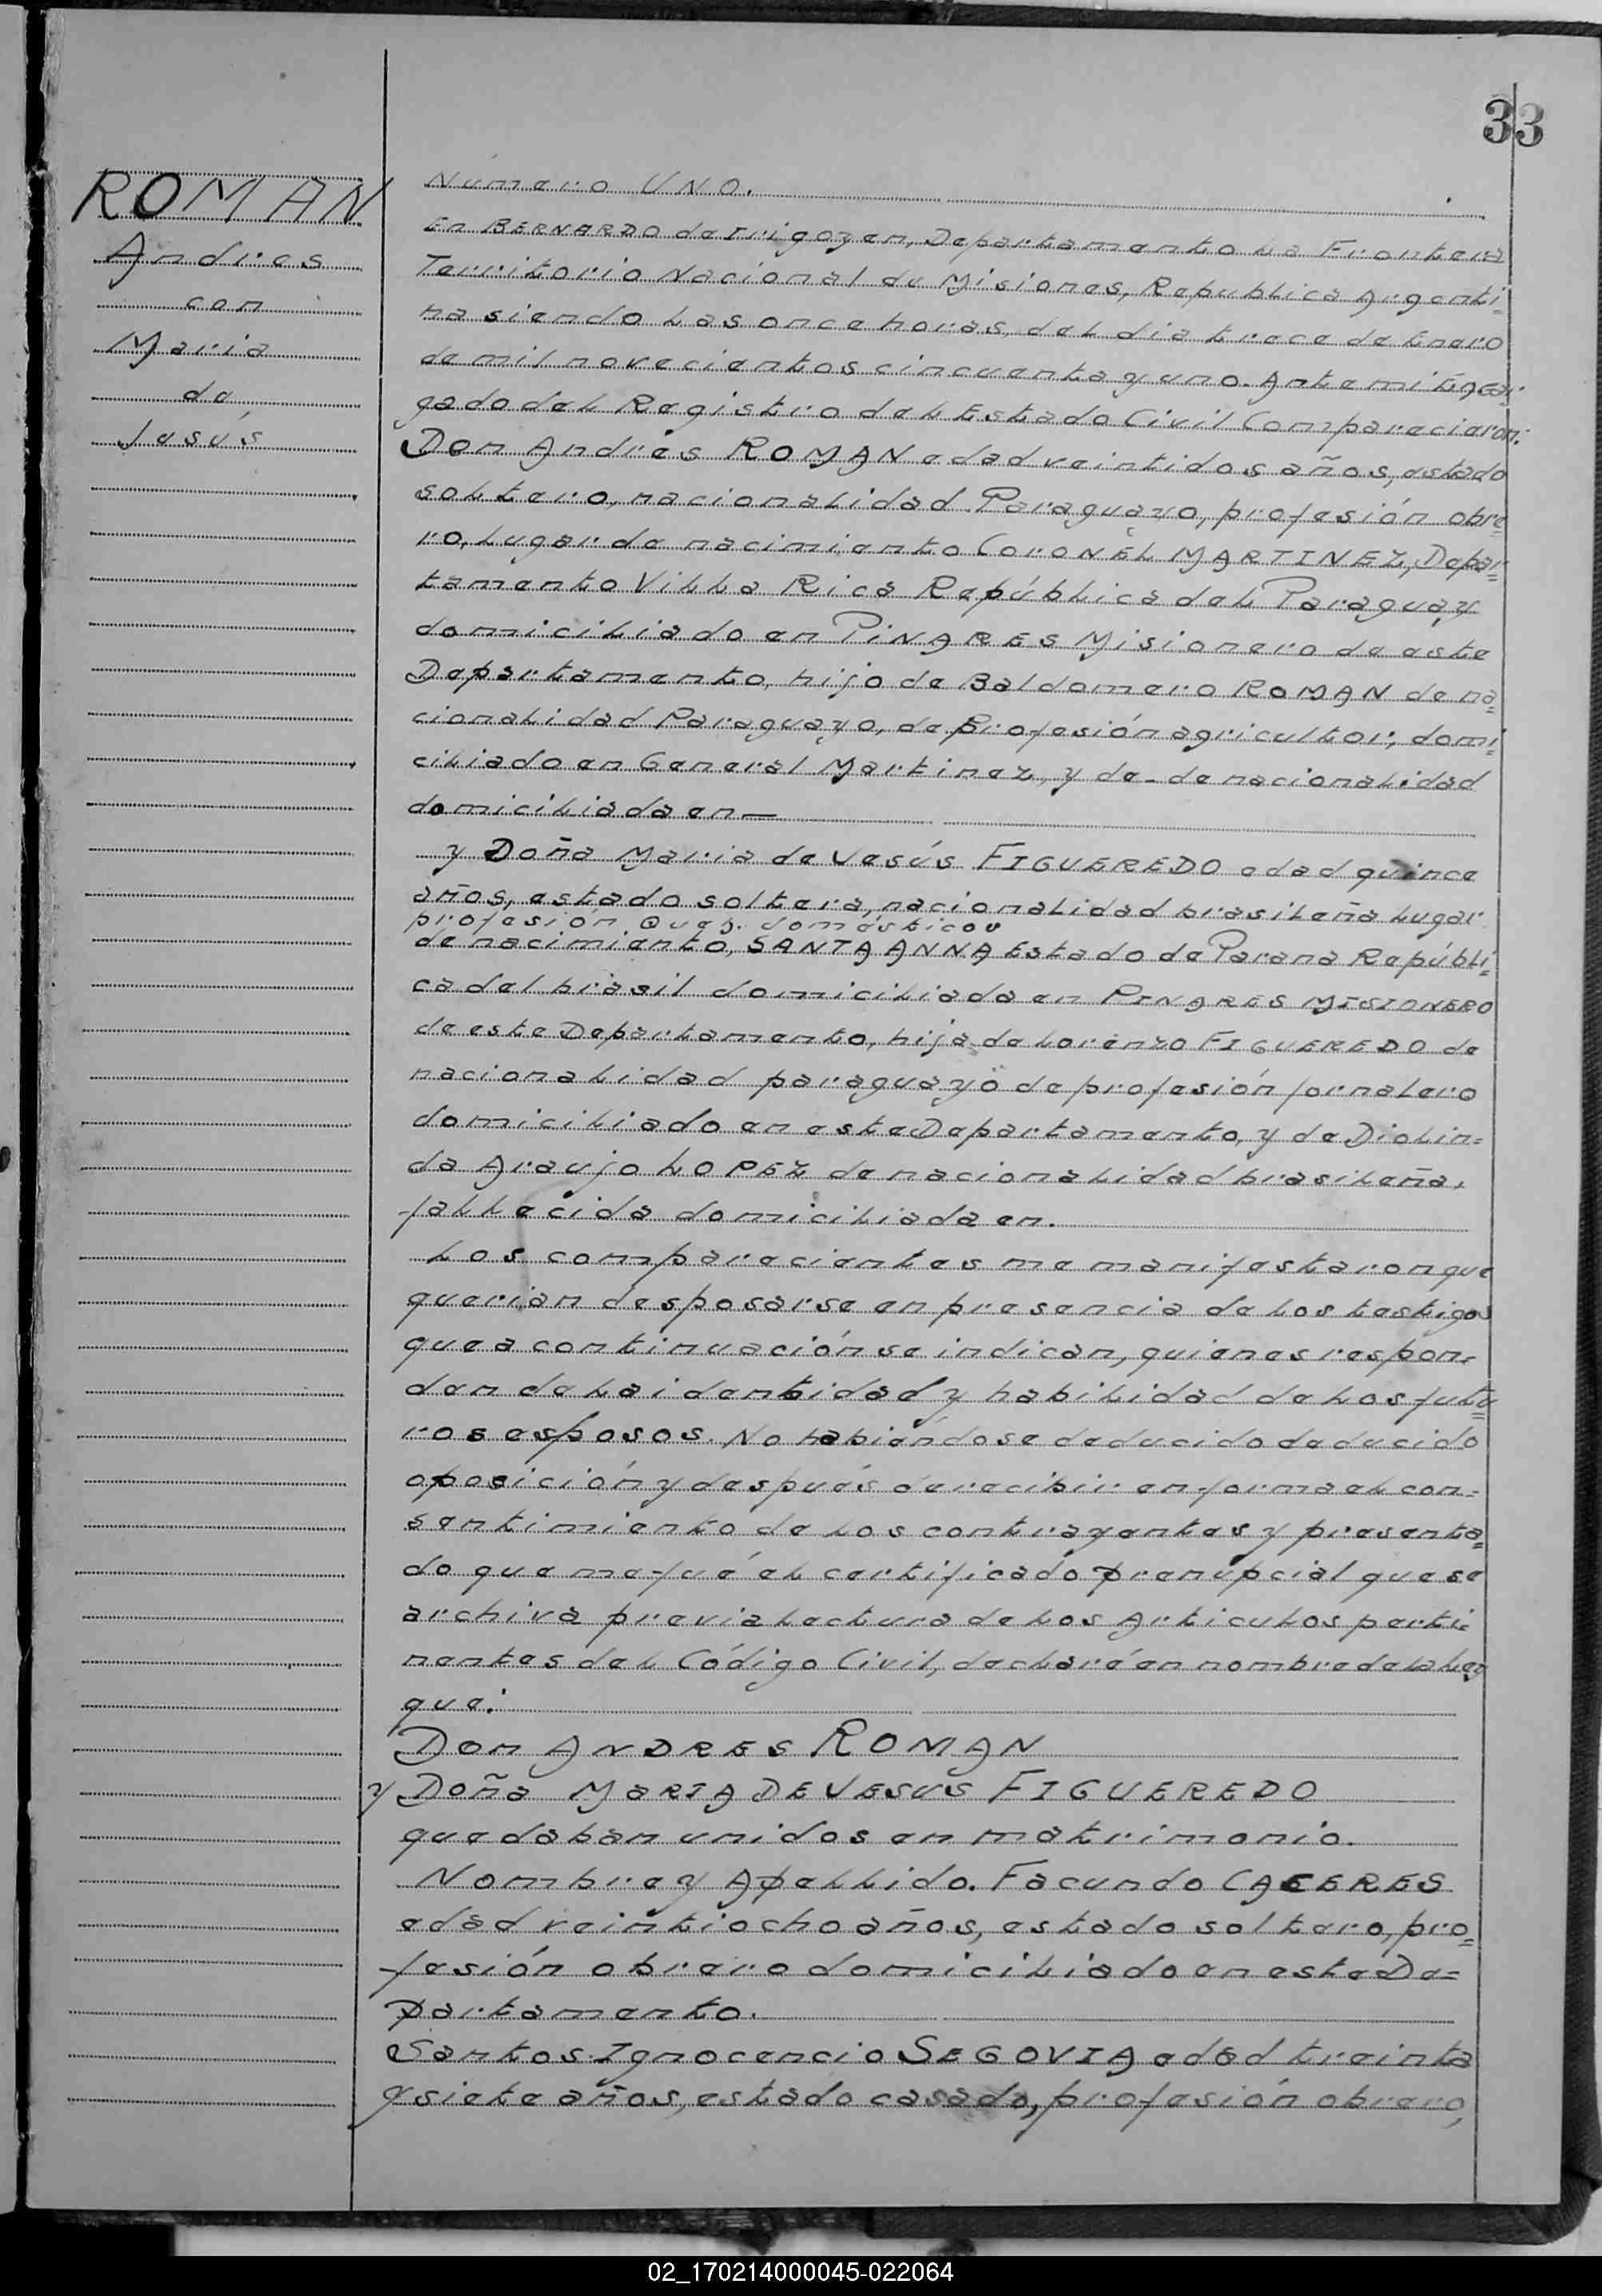 33
ROMAN
Andres
con
Maria
de
Jesús
Número UNO.
En BERNARDO de Irigoyen, Departamento La Frontera
Territorio Nacional de Misiones, Republica Argenti=
na siendo las once horas, del dia trece de Enero
de mil novecientos cincuenta y uno. Ante mi Encar
gado del Registro del Estado Civil Comparecieron:
Don Andrés ROMAN edad veintidos años, estado
soltero, nacionalidad Paraguayo, profesión obre
ro, Lugar de nacimiento CORONEL MARTINEZ, Depar=
tamento Villa Rica República del Paraguay
domiciliado en PINARES Misionero de este
Departamento, hijo de Baldomero ROMAN de na=
cionalidad Paraguayo, de Profesión agricultor, domi=
ciliado en General Martinez, y de - de nacionalidad
domiciliada en —
y Doña Maria de Jesús FIGUEREDO edad quince
años, estado soltera, nacionalidad brasileña Lugar
profesión Queh. domésticos
de nacimiento, SANTA ANNA Estado de Parana Repúbli=
ca del brasil domiciliada en PINARES MISIONERO
de este Departamento, hija de Lorenzo FIGUEREDO de
nacionalidad paraguayo de profesión jornalero
domiciliado en este Departamento, y de Diolin=
da Araujo LOPEZ de nacionalidad brasileña,
fallecida domiciliada en.
Los comparecientes me manifestaron que
querian desposarse en presencia de los testigos
que a continuación se indican, quienes respon=
den de la identidad y habilidad de los futu=
ros esposos. No habiéndose deducido deducido
oposición y después de recibir en forma el con=
sentimiento de los contrayentes y presenta=
do que me fué el certificado prenupcial que se
archiva previa lectura de los Articulos perti=
nentes del Código Civil, declaré en nombre de la Ley
que:
Don ANDRES ROMAN
y Doña MARIA DE JESUS FIGUEREDO
quedaban unidos en matrimonio.
Nombre y Apellido. Facundo CACERES
edad veintiocho años, estado soltero, pro=
fesión obrero domiciliado en este De=
partamento.
Santos Ignocencio SEGOVIA edad treinta
y siete años, estado casado, profesión obrero,
02_170214000045-022064